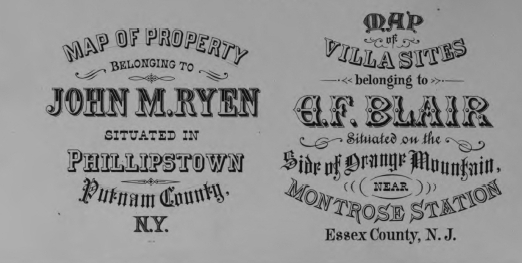 MAP OF PROPERTY
BELONGING TO
JOHN M. RYEN
SITUATED IN
PHILLIPSTOWN
Putnam County,
N.Y.
MAP
of
VILLA SITES
belonging to
G.F. BLAIR
Situated on the
Side of Orange Mountain,
NEAR
MONTROSE STATION
Essex County, N. J.